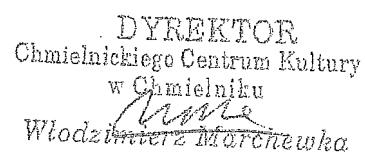 DYREKTOR
Chmielnickiego Centrum Kultury
w Chmielniku
Włodzimierz Marchewka